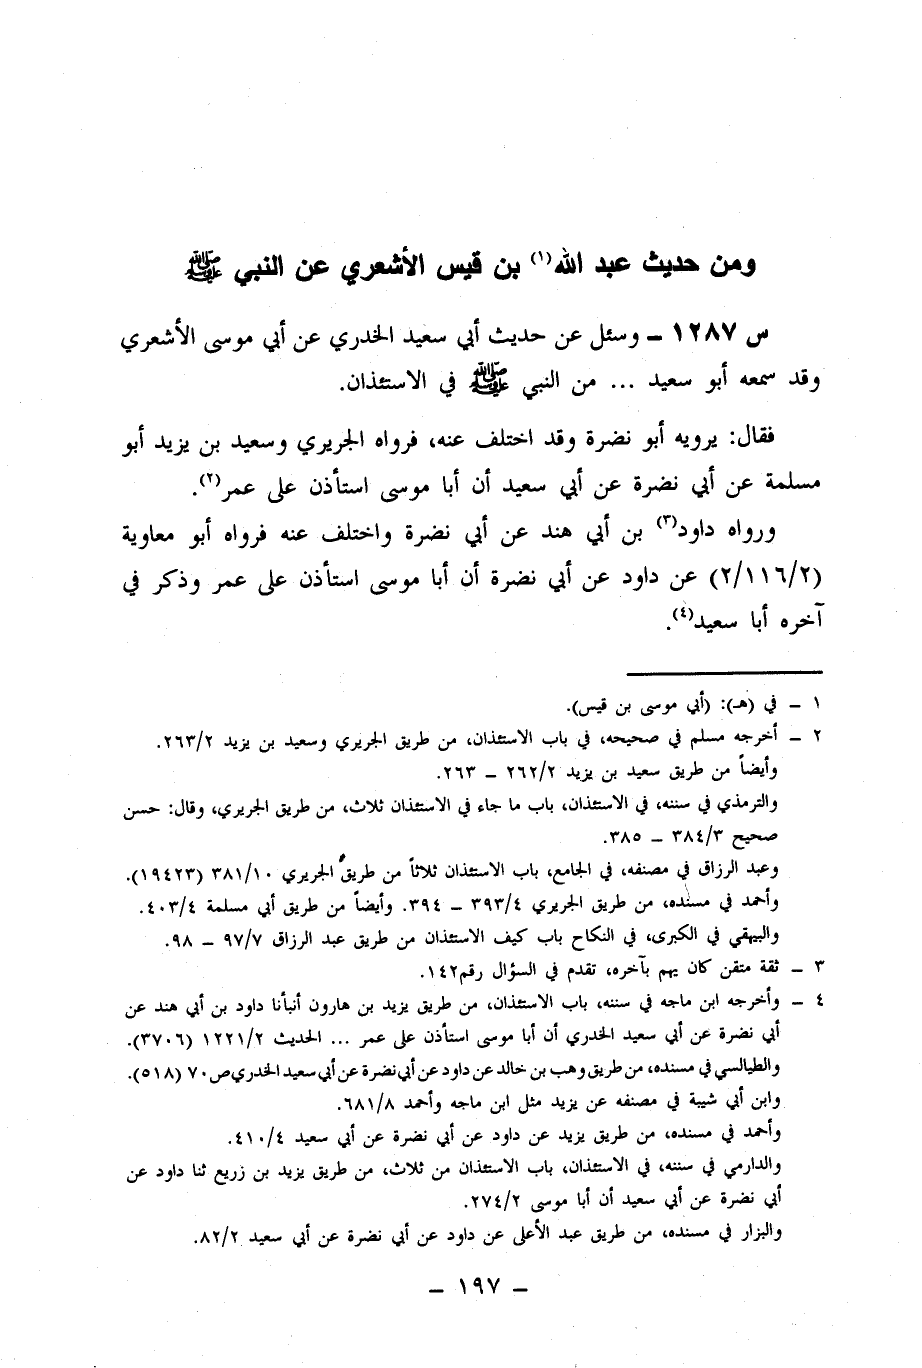 ومن حديث عبد الله(١) بن قيس الأشعري عن النبي ﷺ
س ١٢٨٧ ـ وسئل عن حديث أبي سعيد الخدري عن أبي موسى الأشعري
وقد سمعه أبو سعيد ... من النبي ﷺ في الاستئذان.
فقال: يرويه أبو نضرة وقد اختلف عنه، فرواه الجريري وسعيد بن يزيد أبو
مسلمة عن أبي نضرة عن أبي سعيد أن أبا موسى استأذن على عمر(٢).
ورواه داود(٣) بن أبي هند عن أبي نضرة واختلف عنه فرواه أبو معاوية
(٢/١١٦/٢) عن داود عن أبي نضرة أن أبا موسى استأذن على عمر وذكر في
آخره أبا سعيد(٤).
١ ـ في (هـ): (أبي موسى بن قيس).
٢ ـ أخرجه مسلم في صحيحه، في باب الاستئذان، من طريق الجريري وسعيد بن يزيد ٢٦٣/٢.
وأيضاً من طريق سعيد بن يزيد ٢٦٢/٢ ـ ٢٦٣.
والترمذي في سننه، في الاستئذان، باب ما جاء في الاستئذان ثلاث، من طريق الجريري، وقال: حسن
صحيح ٣٨٤/٣ ـ ٣٨٥.
وعبد الرزاق في مصنفه، في الجامع، باب الاستئذان ثلاثاً من طريق الجريري ٣٨١/١٠ (١٩٤٢٣).
وأحمد في مسنده، من طريق الجريري ٣٩٣/٤ ـ ٣٩٤. وأيضاً من طريق أبي مسلمة ٤٠٣/٤.
والبيهقي في الكبرى، في النكاح باب كيف الاستئذان من طريق عبد الرزاق ٩٧/٧ ـ ٩٨.
٣ ـ ثقة متقن كان يهم بآخره، تقدم في السؤال رقم١٤٢.
٤ ـ وأخرجه ابن ماجه في سننه، باب الاستئذان، من طريق يزيد بن هارون أنبأنا داود بن أبي هند عن
أبي نضرة عن أبي سعيد الخدري أن أبا موسى استأذن على عمر ... الحديث ١٢٢١/٢ (٣٧٠٦).
والطيالسي في مسنده، من طريق وهب بن خالد عن داود عن أبي نضرة عن أبي سعيد الخدري ص٧٠ (٥١٨).
وابن أبي شيبة في مصنفه عن يزيد مثل ابن ماجه وأحمد ٦٨١/٨.
وأحمد في مسنده، من طريق يزيد عن داود عن أبي نضرة عن أبي سعيد ٤١٠/٤.
والدارمي في سننه، في الاستئذان، باب الاستئذان من ثلاث، من طريق يزيد بن زريع ثنا داود عن
أبي نضرة عن أبي سعيد أن أبا موسى ٢٧٤/٢.
والبزار في مسنده، من طريق عبد الأعلى عن داود عن أبي نضرة عن أبي سعيد ٨٢/٢.
ـ ١٩٧ ـ